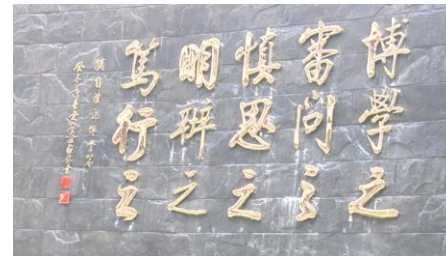 博學之
審問之
慎思之
明辨之
篤行之